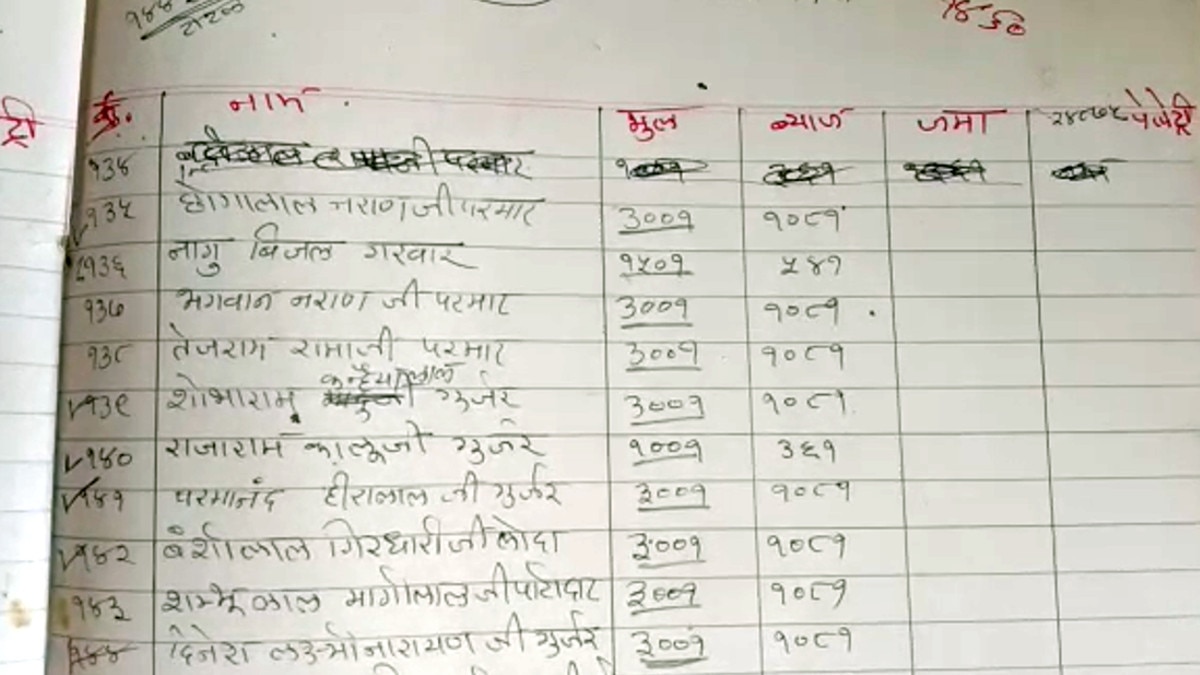 क्र. नाम मुल ब्याज जमा
१३४ परमार
१३५ छोगालाल नराणजी परमार ३००१ १०८१
१३६ नागु बिजल गरवार १५०१ ५४१
१३७ भगवान नराण जी परमार ३००१ १०८१
१३८ तेजराम रामाजी परमार ३००१ १०८१
१३९ शोभाराम कन्हैयालाल गुर्जर ३००१ १०८१
१४० राजाराम कालूजी गुर्जर १००१ ३६१
१४१ परमानंद हीरालाल जी गुर्जर ३००१ १०८१
१४२ बंशीलाल गिरधारीजी लोदा ३००१ १०८१
१४३ शम्भूलाल मांगीलाल जी पाटीदार ३००१ १०८१
१४४ दिनेश लक्ष्मीनारायण जी गुर्जर ३००१ १०८१